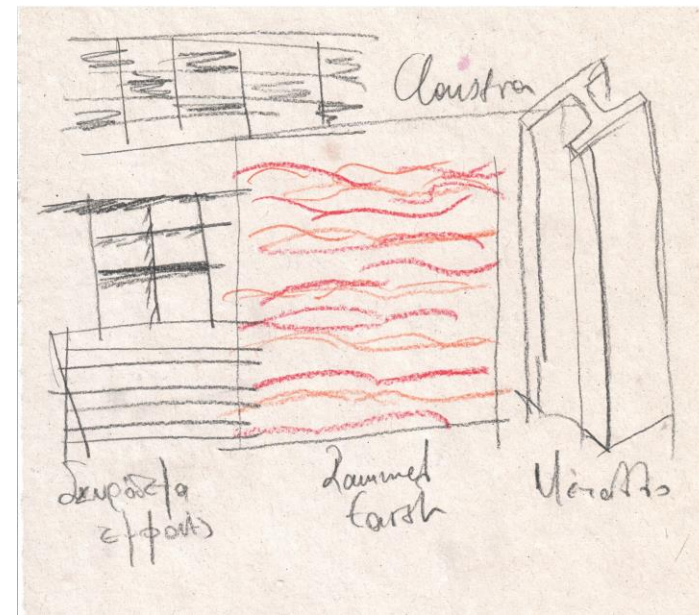 Claustra
Σκυρόδεμα
εμφανές
Rammed
Earth
Μέταλλο